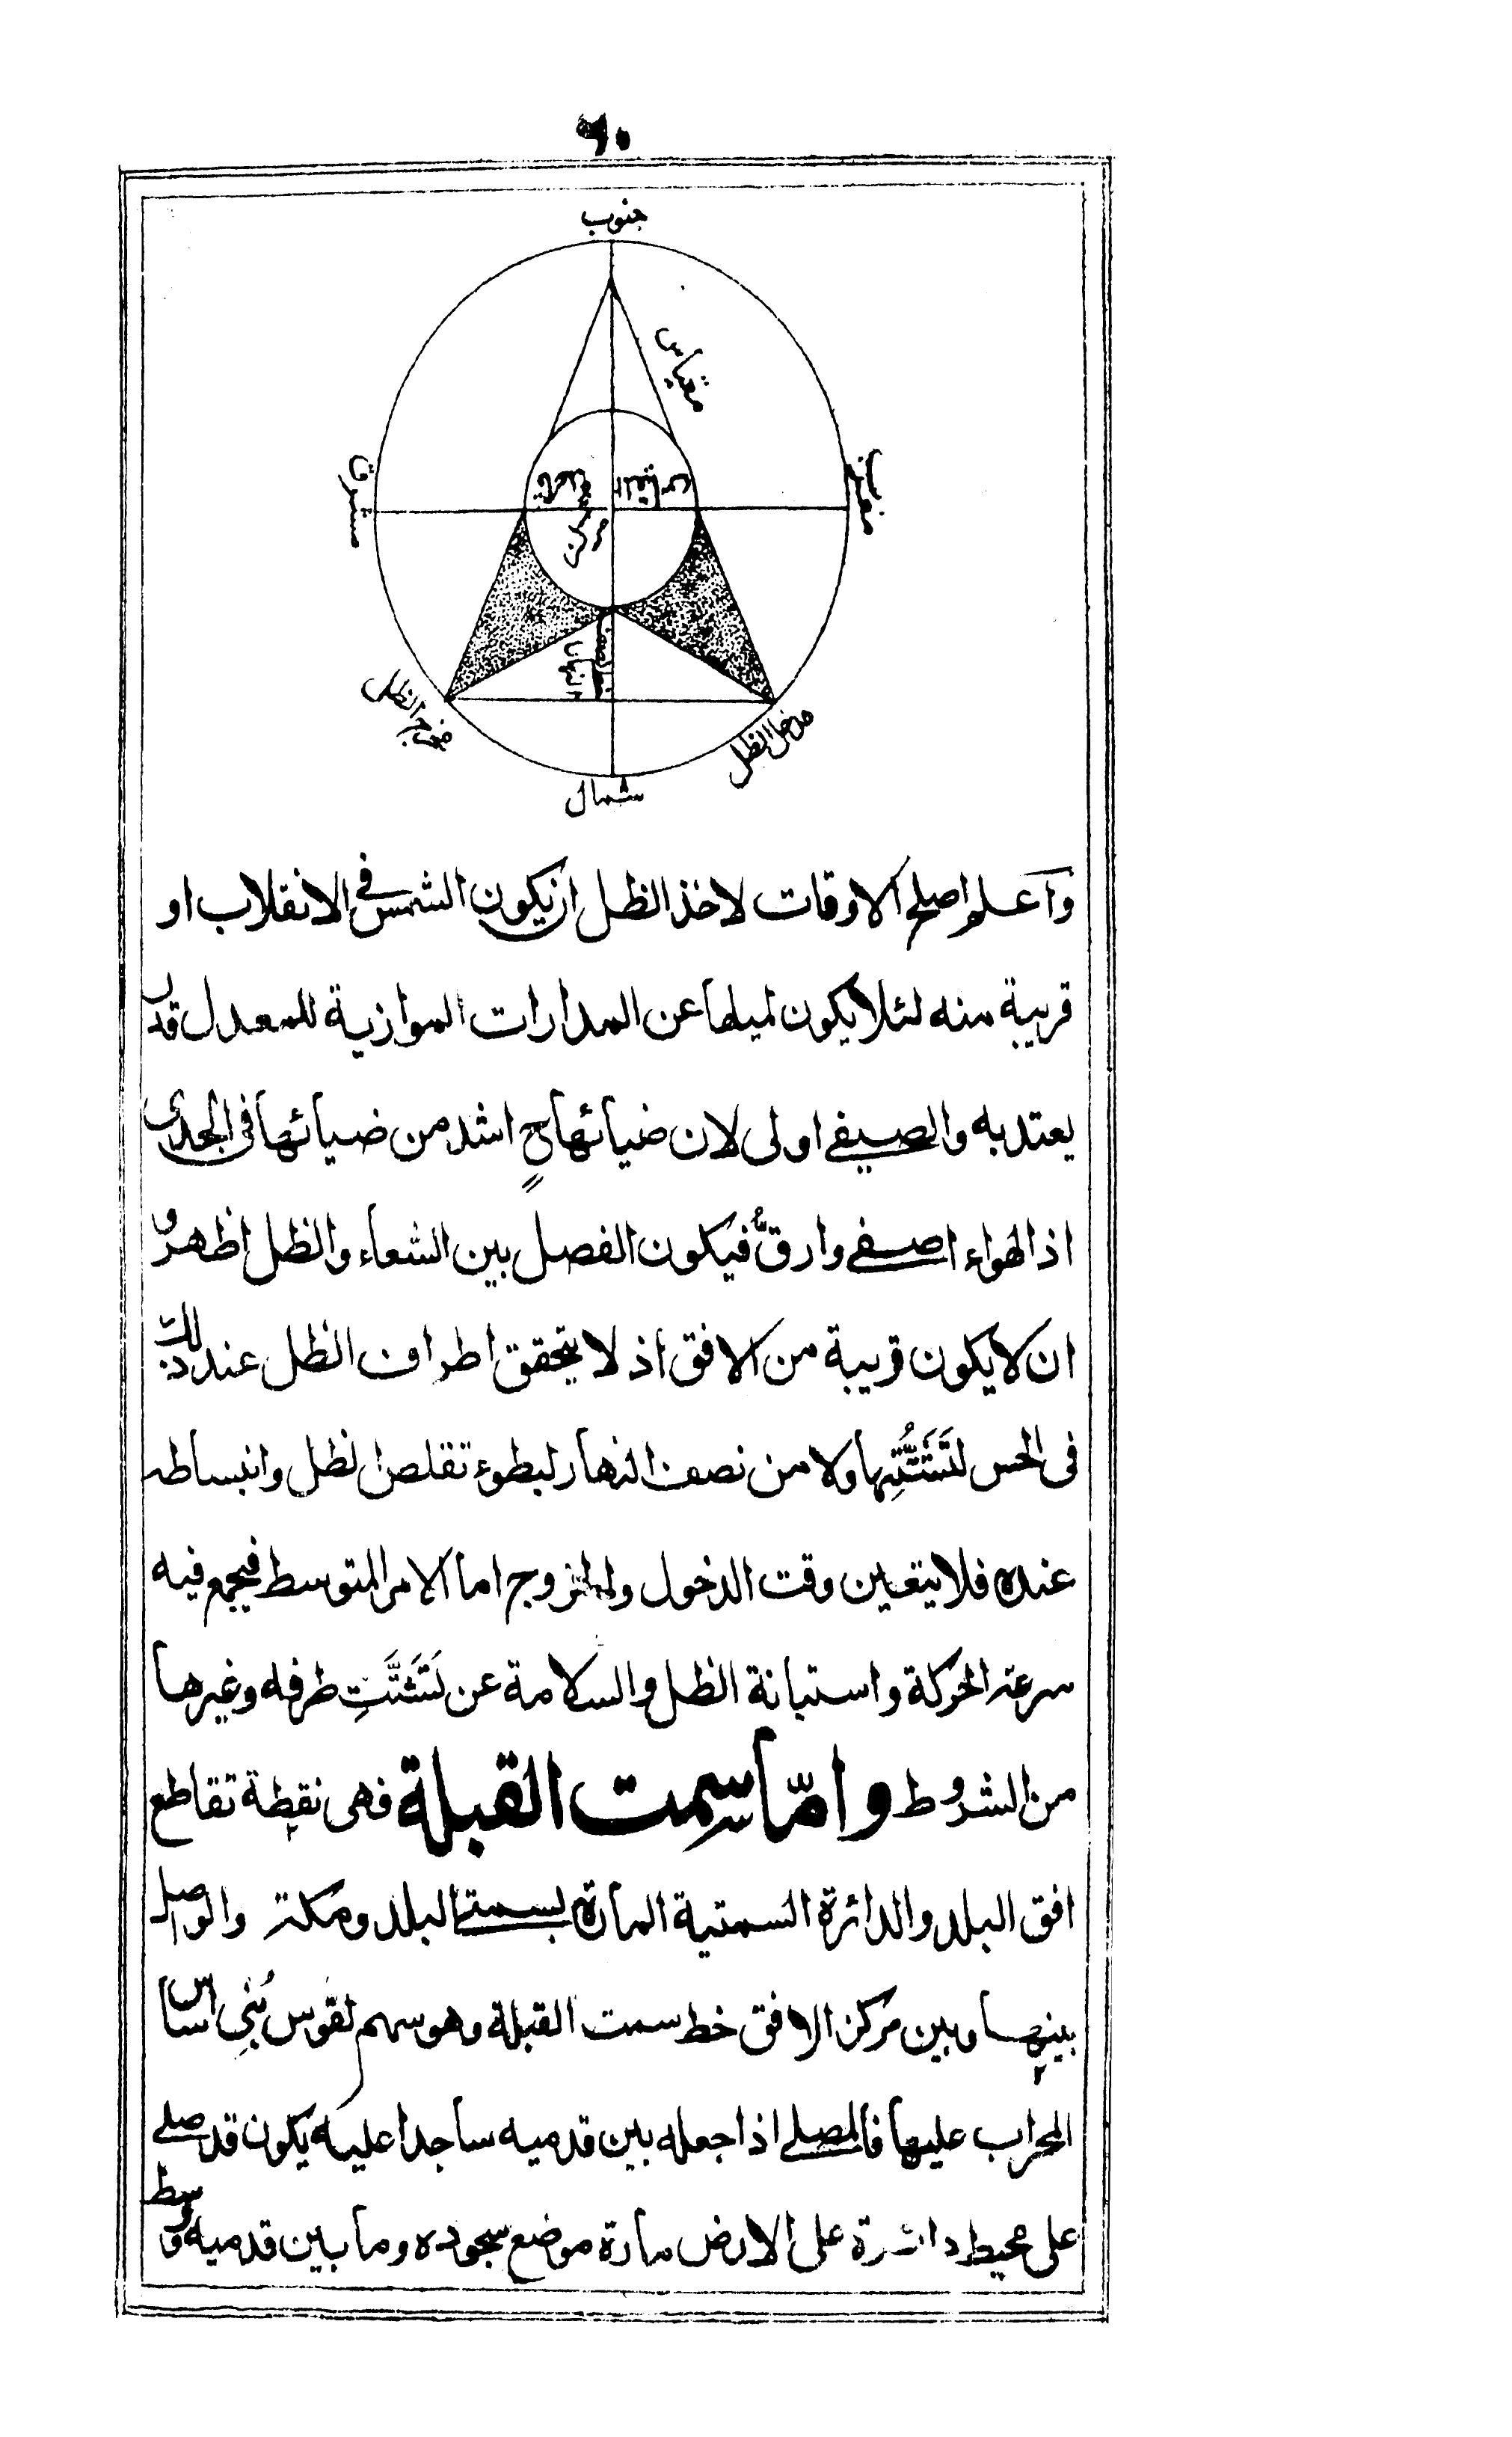 ٦٠
جنوب
مقیاس
مشرق
مغرب
مركز
مخرج الظل
مدخل الظل
شمال
واعلم اصلح الاوقات لاخذ الظل ان یكون الشمس فی الانقلاب او
قریبة منه لئلا یكون لمیلها عن المدارات الموازیة للمعدل قدر
یعتد به والصیفی اولی لان ضیائها ح اشد من ضیائها فی الجدی
اذ الهواء اصفی وارقُّ فیكون الفصل بین الشعاء والظل اظهر و
ان لا یكون قریبة من الافق اذ لا یتحقق اطراف الظل عند ذلك
فی الحس لتَشَتُّتِها ولا من نصف النهار لبطوء تقلص الظل وانبساطه
عنده فلا یتعین وقت الدخول والخروج اما الامر المتوسط فیجمع فیه
سرعة الحركة واستبانة الظل والسلامة عن تَشَتَّتِ طرفه وغیرها
من الشروط وامّا سمت القبلة فهی نقطة تقاطع
افق البلد والدائرة السمتیة المارة بسمتی البلد ومكة والواصل
بینها وبین مركز الافق خط سمت القبلة وهو سهم لقوس بُنِی اساس
المحراب علیها فالمصلی اذا جعله بین قدمیه ساجدا علیه یكون قد صلی
علی محیط دائرة علی الارض مارة موضع سجوده وما بین قدمیه ووسط